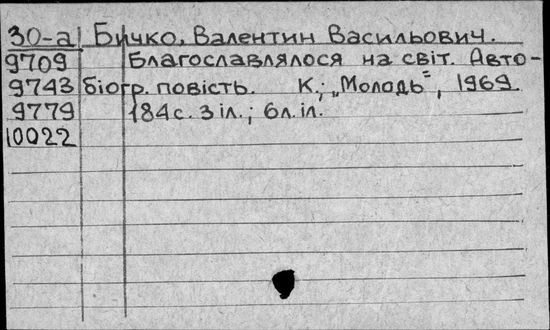 30-а Бичко, Валентин Васильович.
9709 Благославлялося на світ. Авто-
9743 біогр. повість. К.; „Молодь", 1969.
9779 184 с. з іл.; 6 л. іл.
10022